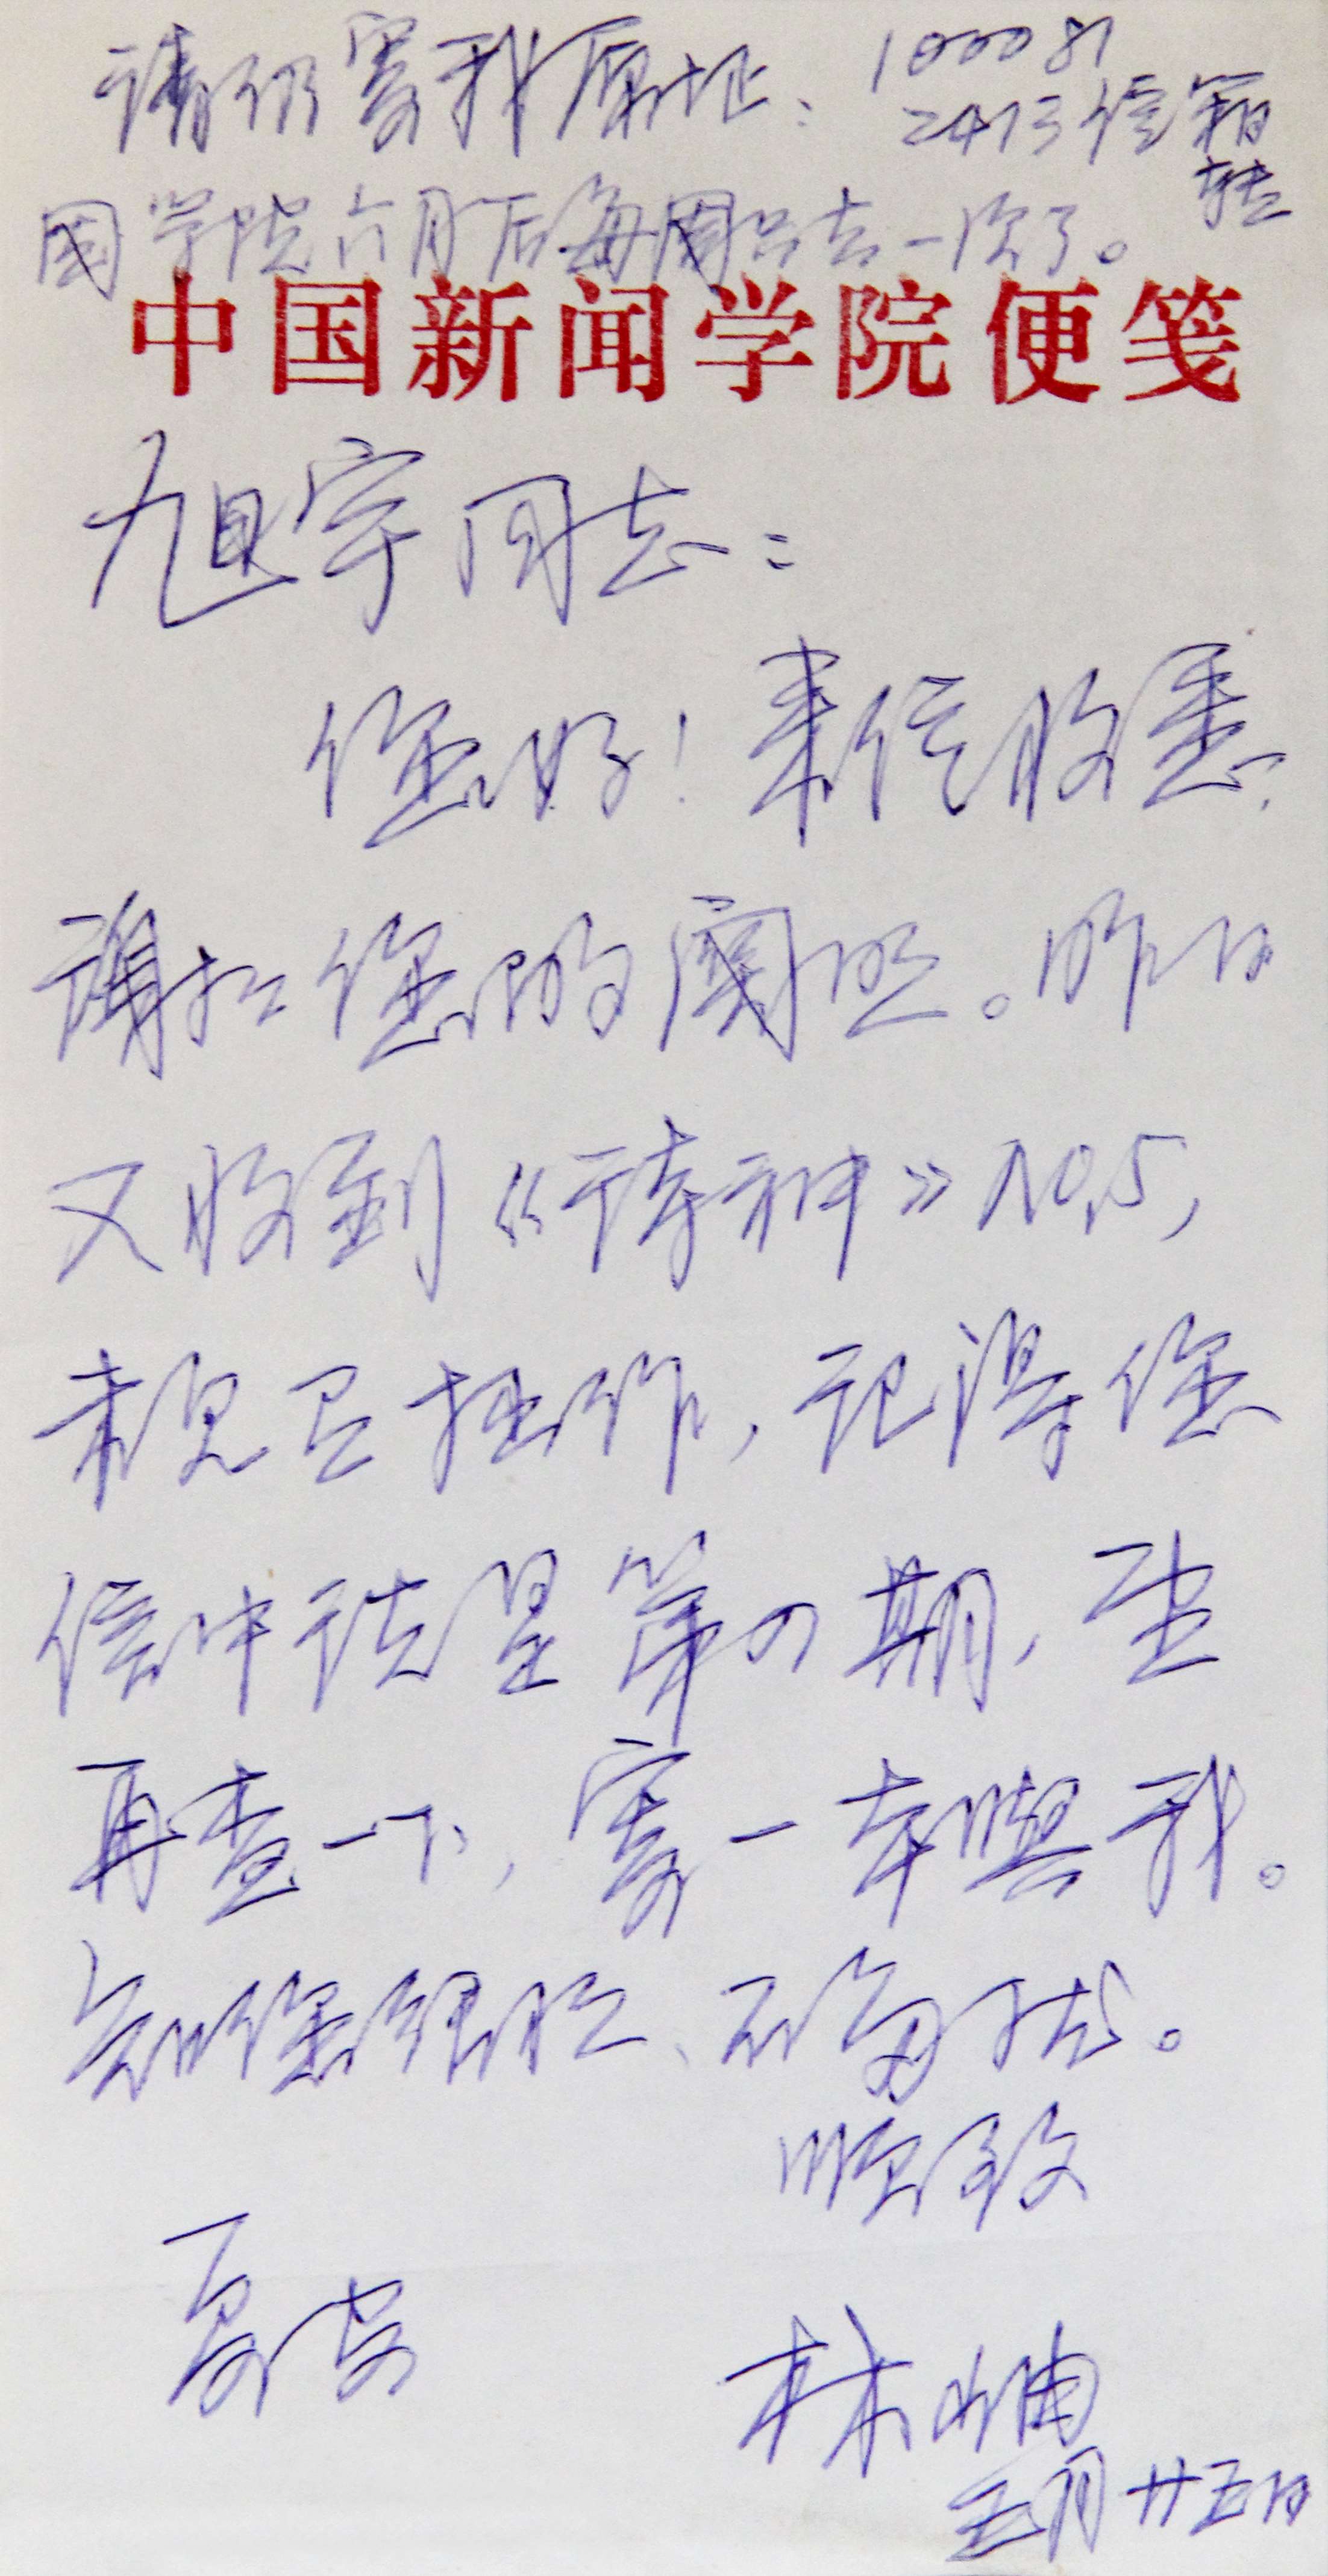 请仍寄我原址：100081
2413信箱
转
因学院六月后每周只去一次了。
中国新闻学院便笺
旭宇同志：
您好！来信收悉，
谢谢您的关照。昨日
又收到《诗神》NO.5，
未见有拙作，记得您
信中说是第四期，望
再查一下，寄一本赐我。
知您很忙、不多扰。
顺致
夏安
林岫
五月廿五日